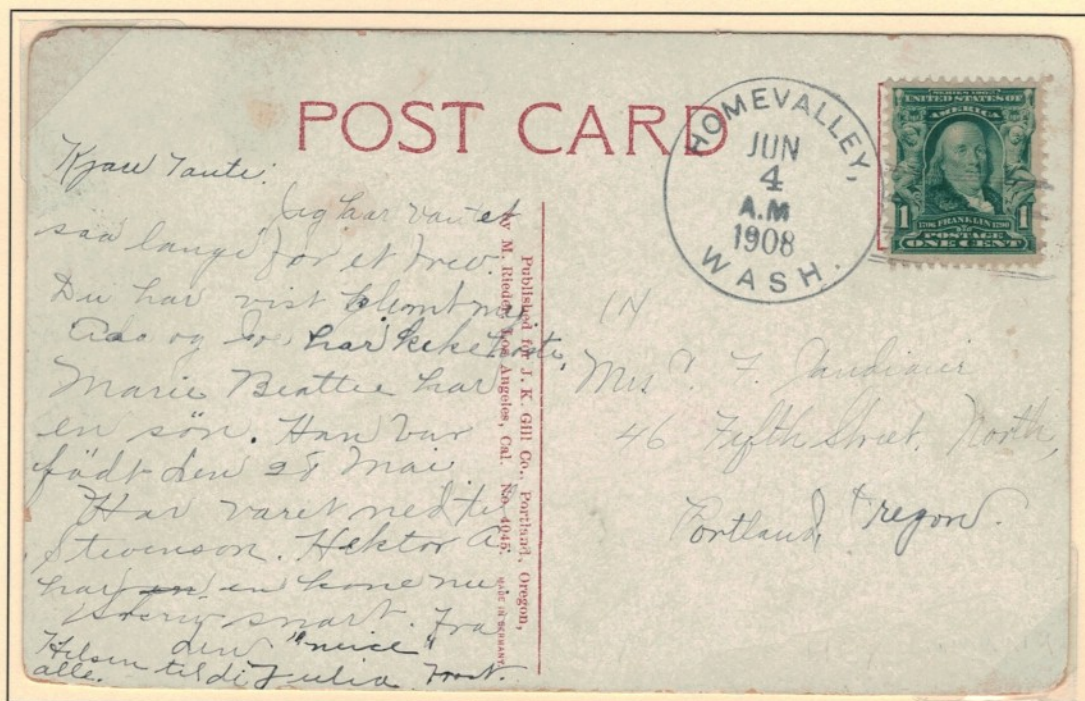 POST CARD
HOMEVALLEY,
JUN
4
A.M
1908
WASH.
SERIES 1902
UNITED STATES OF
AMERICA
1 1706 FRANKLIN 1790 1
POSTAGE
ONE CENT
Kjære Tante.
Jeg har vantet
saa lange for et brev.
Du har vist glemt mig
og har kikehoste,
Marie Beattie har
en sön. Han var
födt den 28 Mai
Har varet ned til
Stevenson. Hektor A.
har en en kone nu.
Skriv snart. Fra
den "neice"
Hilsen til di Julia
alle.
Published for J. K. Gill Co., Portland, Oregon,
by M. Rieder, Los Angeles, Cal. No. 4045. MADE IN GERMANY.
Mrs F.
46 Fifth Street, North,
Portland, Oregon.